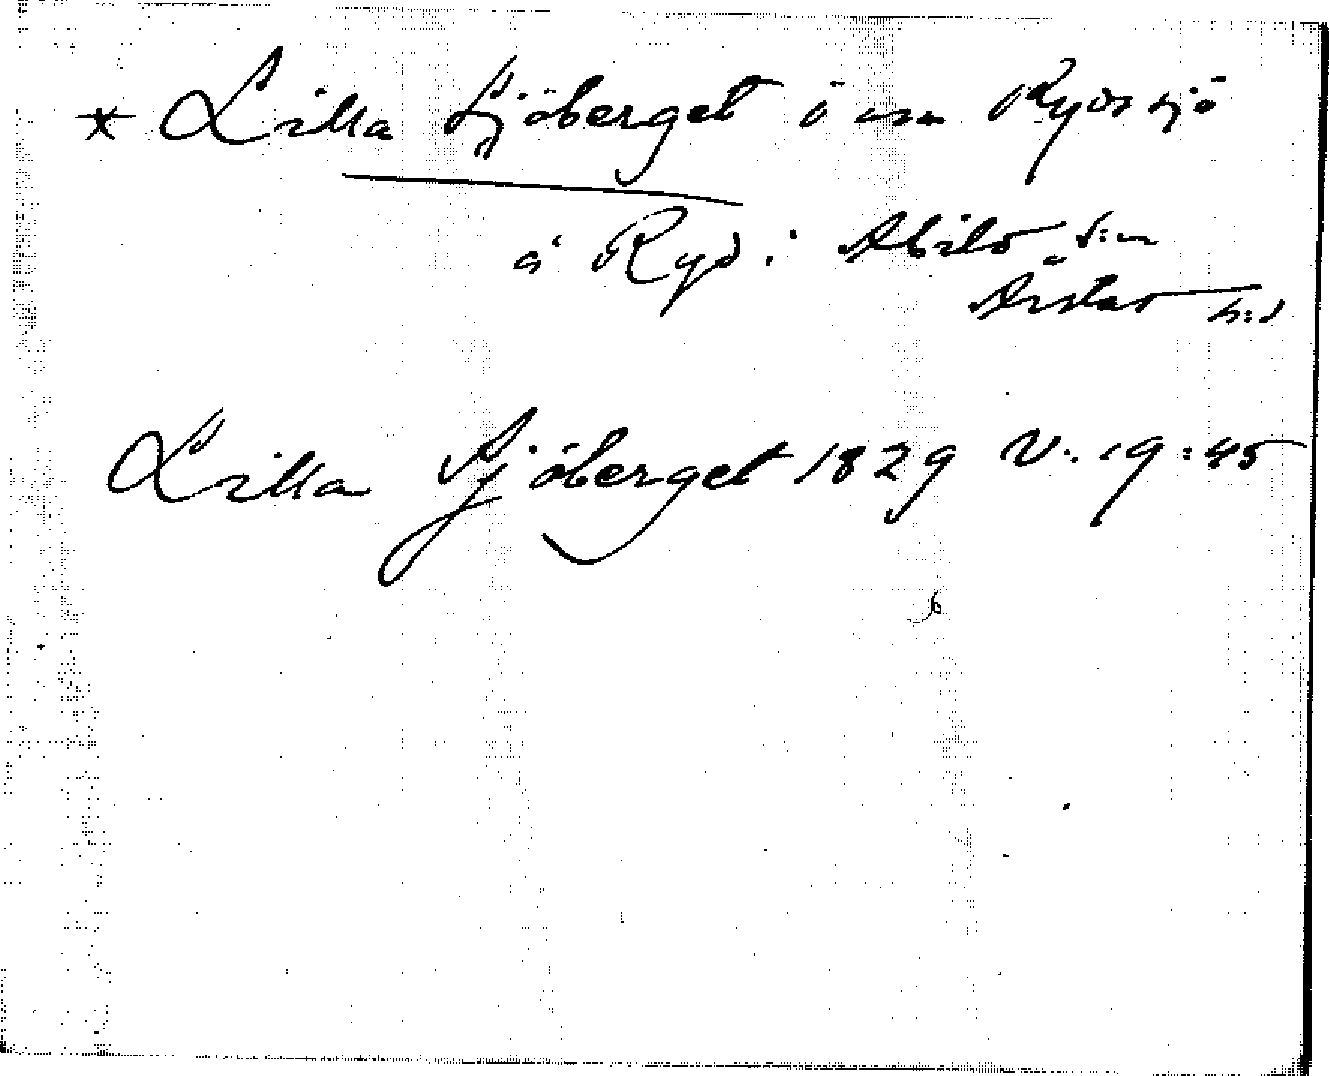 * Lilla Sjöberget ö om Rydsjö
å Ryd i Abild s:n
Årstad h:d
Lilla Sjöberget 1829 V:19:45